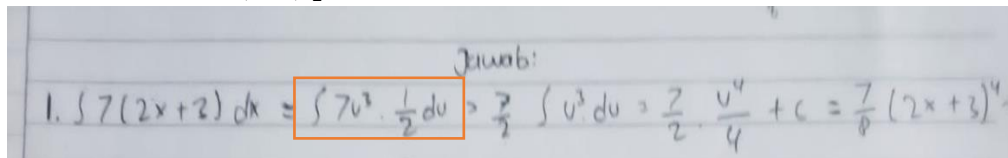 Jawab:
1. ∫ 7 (2x + 3) dx = ∫ 7u³ . 1/2 du = 7/2 ∫ u³ du = 7/2 . u⁴/4 + c = 7/8 (2x + 3)⁴